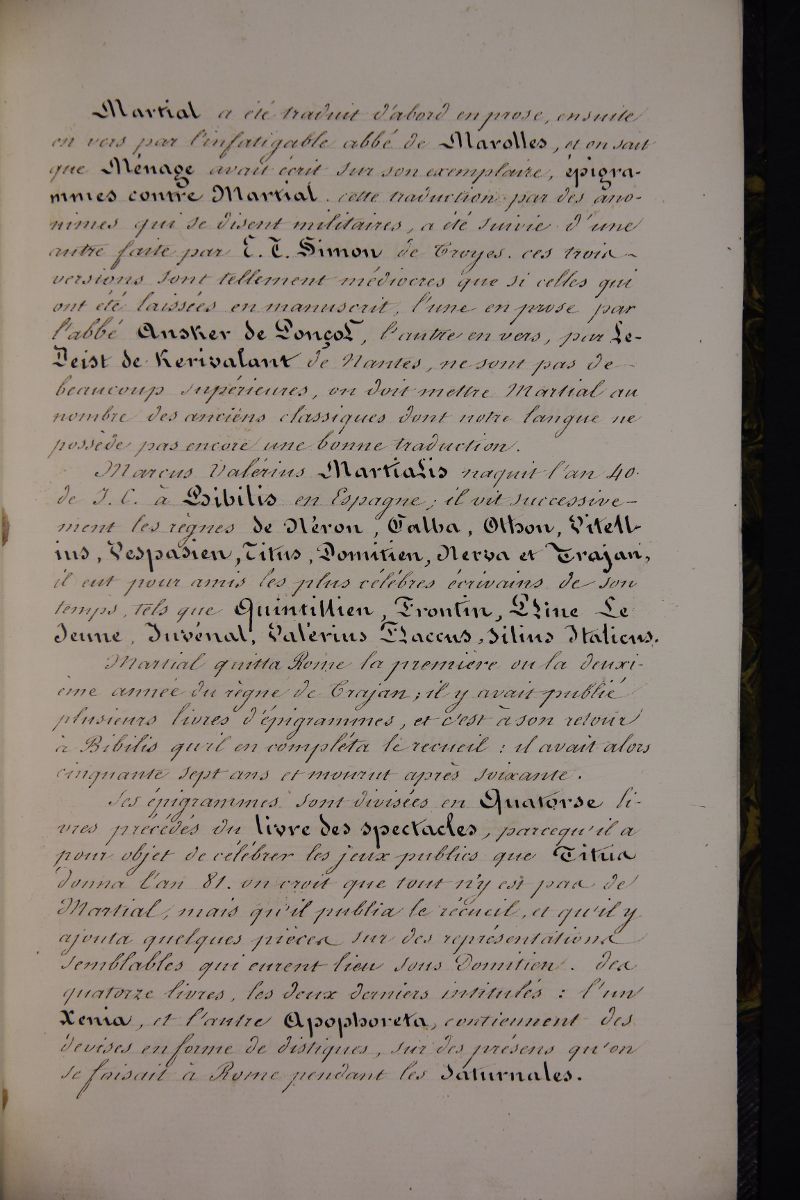 Martial a été traduit d'abord en prose, ensuite
en vers par l'infatigable abbé de Marolles, et on sait
que Ménage avait écrit sur son exemplaire, épigra-
mmes contre Martial. cette traduction par des ano-
nimes qui se disent militaires, a été suivie d'une
autre faite par E. T. Simon de Troyes. ces trois
versions sont tellement médiocres que si celles qui
ont été laissées en manuscrit, l'une en prose par
l'abbé Ansker de Ponçol, l'autre en vers, par Le-
Deist de Kerivalant de Nantes, ne sont pas de
beaucoup supérieures, on doit mettre Martial au
nombre des anciéns classiques dont notre langue ne
possède pas encore une bonne traduction.
Marcus Valérius Martialis naquit l'an 40.
de J. C. à Bibilis en Espagne; il vit successive-
ment les règnes de Néron, Galba, Othon, Vitell-
ius, Vespasien, Titus, Domitien, Nerva et Trajan,
il eut pour amis les plus célébres écrivains de son
temps, tels que Quintillien, Frontin, Pline Le
Jeune, Juvénal, Valérius Flaccus, Silius Italicus.
Martial quitta Rome la première ou la deuxi-
ème année du règne de Trajan; il y avait publié
plusieurs livres d'épigrammes, et c'est à son retour
à Bibilis qu'il en compléta le recueil: il avait alors
cinquante sept ans et mourut après soixante.
Ses épigrammes sont divisées en Quatorse li-
vres précédés du livre des spectacles, parcequ'il a
pour objet de célébrer les jeux publics que Titus
donna l'an 81. on croit que tout n'y est pas de
Martial, mais qu'il publia le récueil, et qu'il y
ajouta quelques pièces sur des représentations
semblables qui eurent lieu sous Domitien. des
quatorze livres, les deux derniers intitulés: l'un
Xenia, et l'autre Apophoreta, contiennent des
devises en forme de distiques, sur des présens qu'on
se faisait à Rome pendant les saturnales.